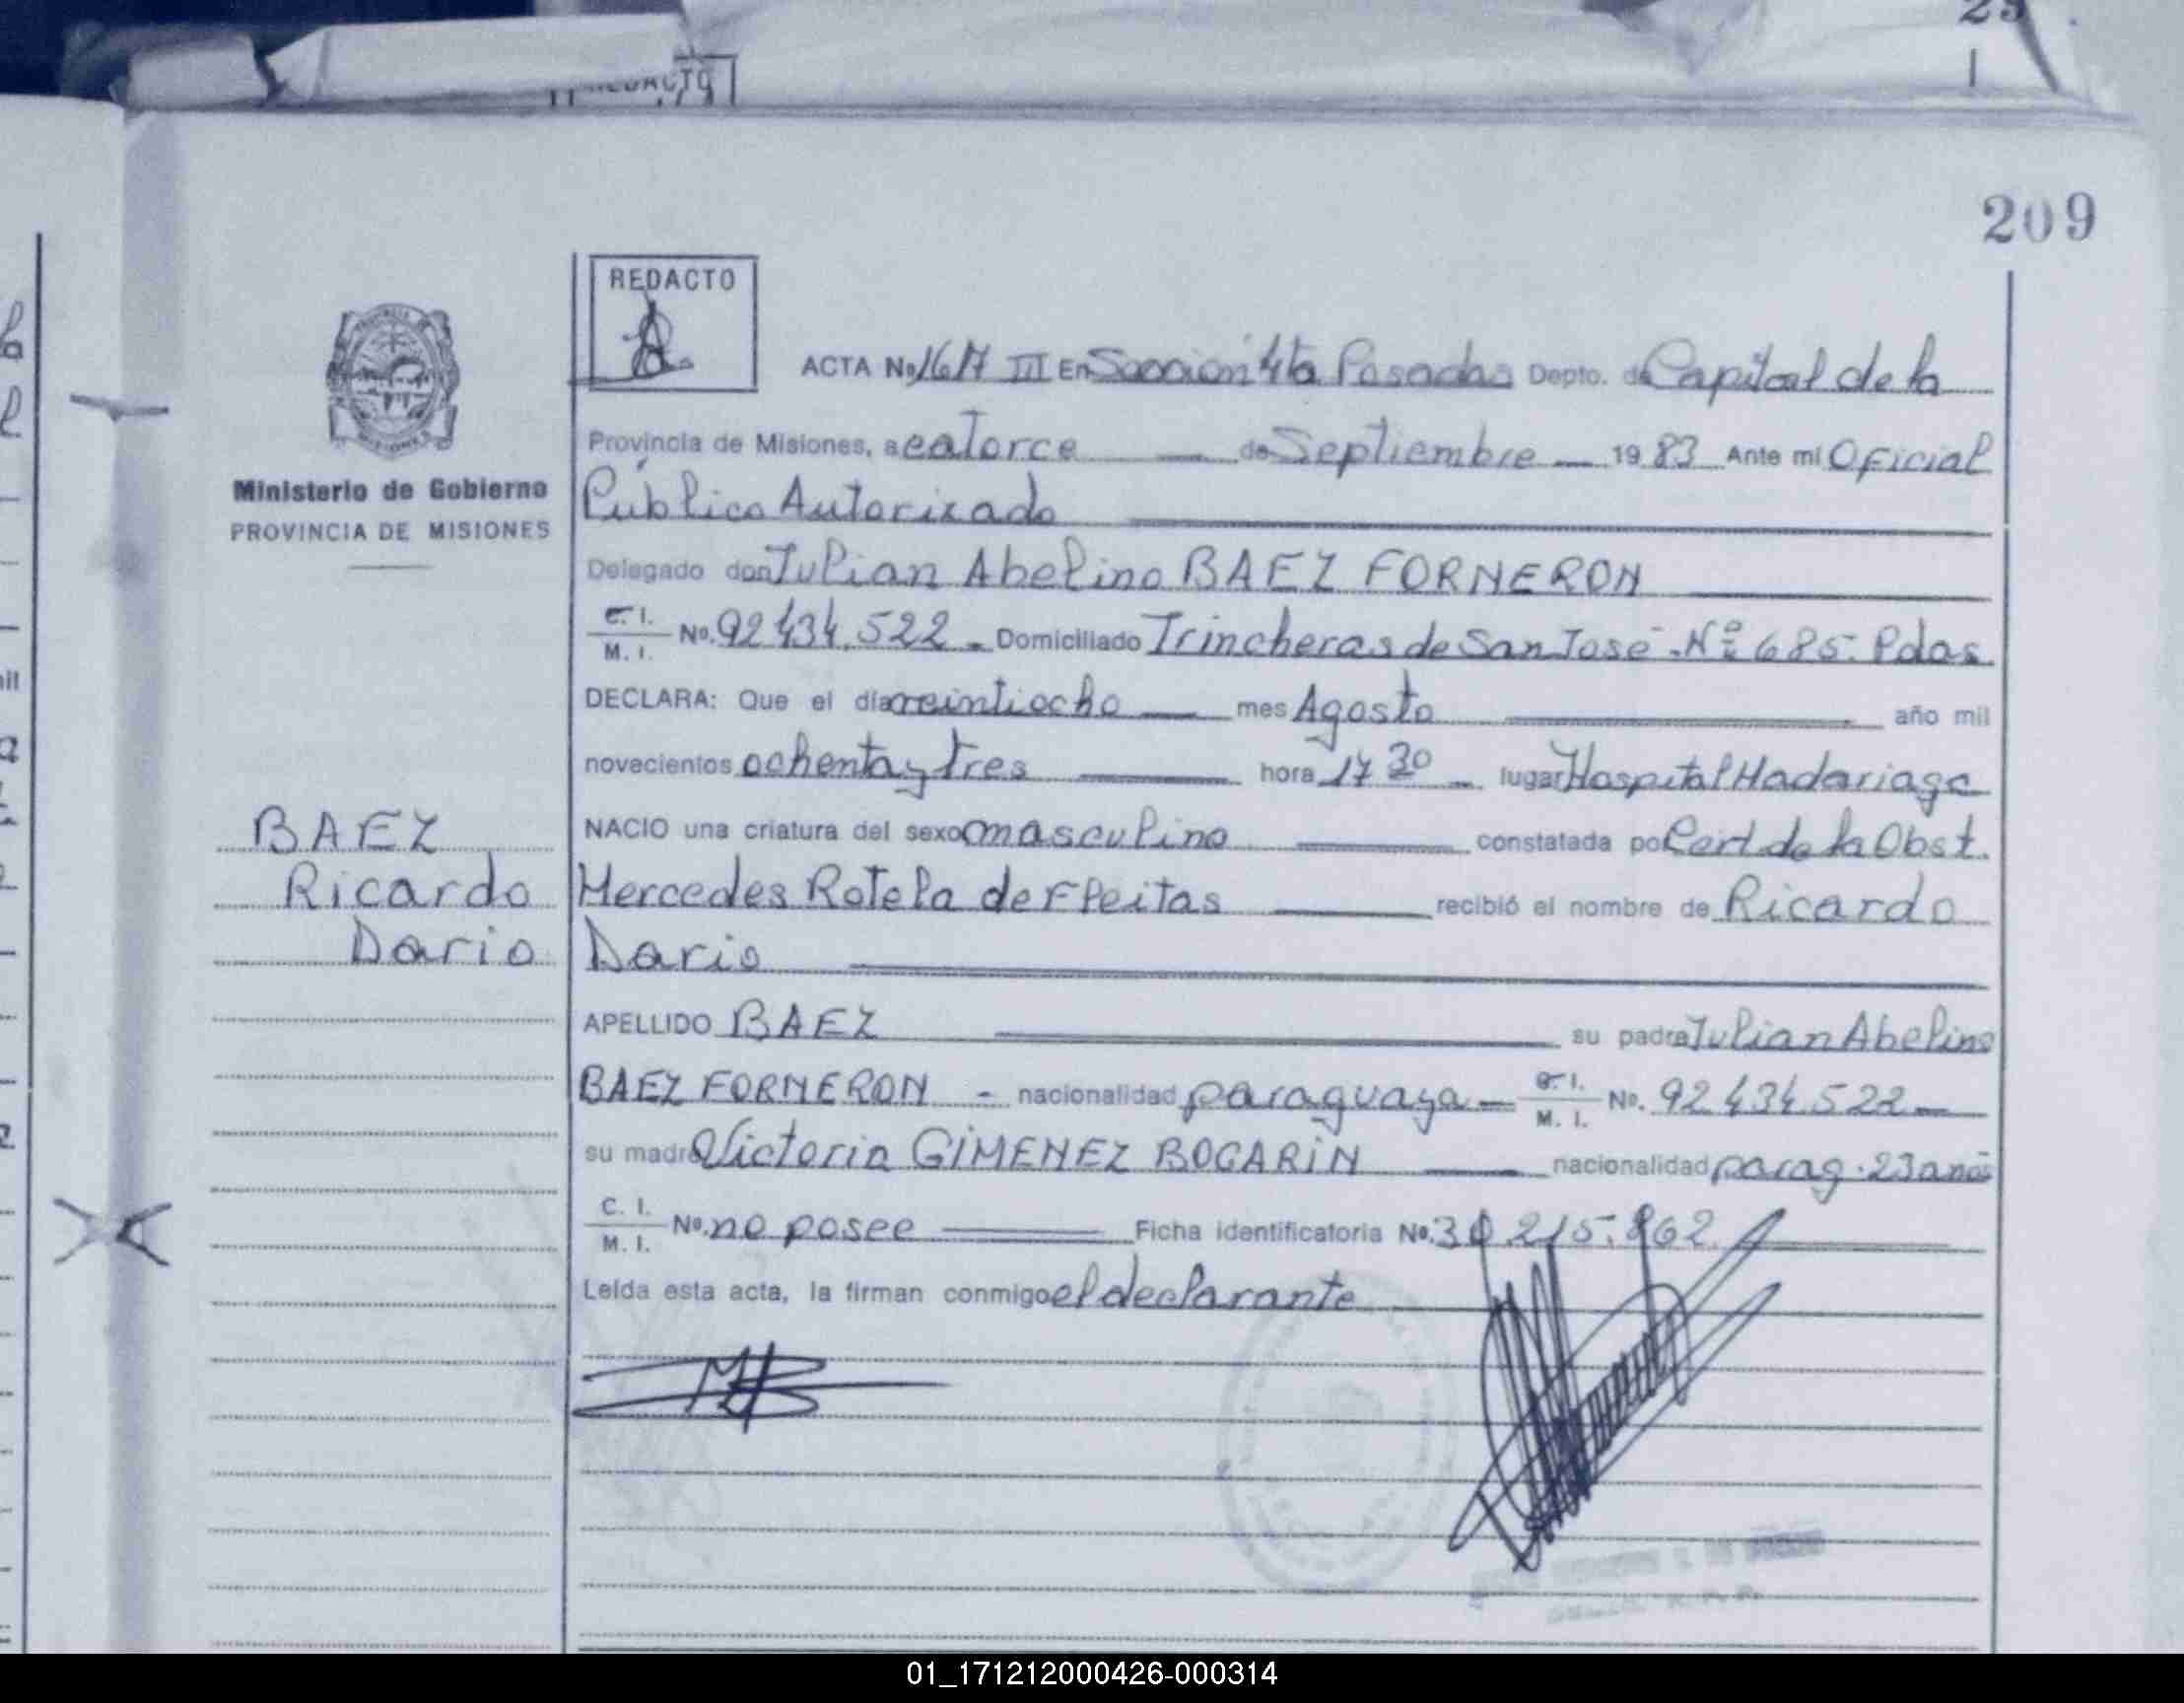 209
REDACTO
ACTA No. 1617 III En Seccion 4ta Posadas Depto. de Capital de la
Provincia de Misiones, a catorce de Septiembre 1983 Ante mi Oficial
Público Autorizado
Ministerio de Gobierno
PROVINCIA DE MISIONES
Delegado don Julian Abelino BAEZ FORNERON
C. I. / M. I. No. 92434.522 - Domiciliado Trincheras de San José - Nº 685. Pdas
DECLARA: Que el día veintiocho mes Agosto año mil
novecientos ochenta y tres hora 17 30 lugar Hospital Madariaga
BAEZ
NACIO una criatura del sexo masculino constatada por Cert de la Obst.
Ricardo
Mercedes Rotela de Fleitas recibió el nombre de Ricardo
Dario
Dario
APELLIDO BAEZ su padre Julian Abelino
BAEZ FORNERON - nacionalidad paraguaya - C. I. / M. I. No. 92434.522
su madre Victoria GIMENEZ BOGARIN nacionalidad parag. 23 anos
C. I. / M. I. No. no posee Ficha identificatoria No. 30.215.862
Leída esta acta, la firman conmigo el declarante
01_171212000426-000314